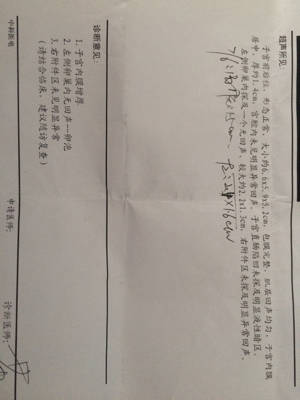 超声所见:
子宫前后位,形态正常,大小约6.6x5.9x5.2cm,包膜完整,肌层回声均匀,子宫内膜
居中,厚约1.4cm,宫腔内未见明显异常回声。子宫直肠陷凹未探及明显液性暗区。
左侧卵巢内探及一个无回声,较大约2.2x1.3cm,右附件区未探及明显异常回声。
诊断意见:
1.子宫内膜增厚
2.左侧卵巢内无回声—卵泡
3.右附件区未见明显异常
(请结合临床,建议随访复查)
申请医师:
诊断医师: